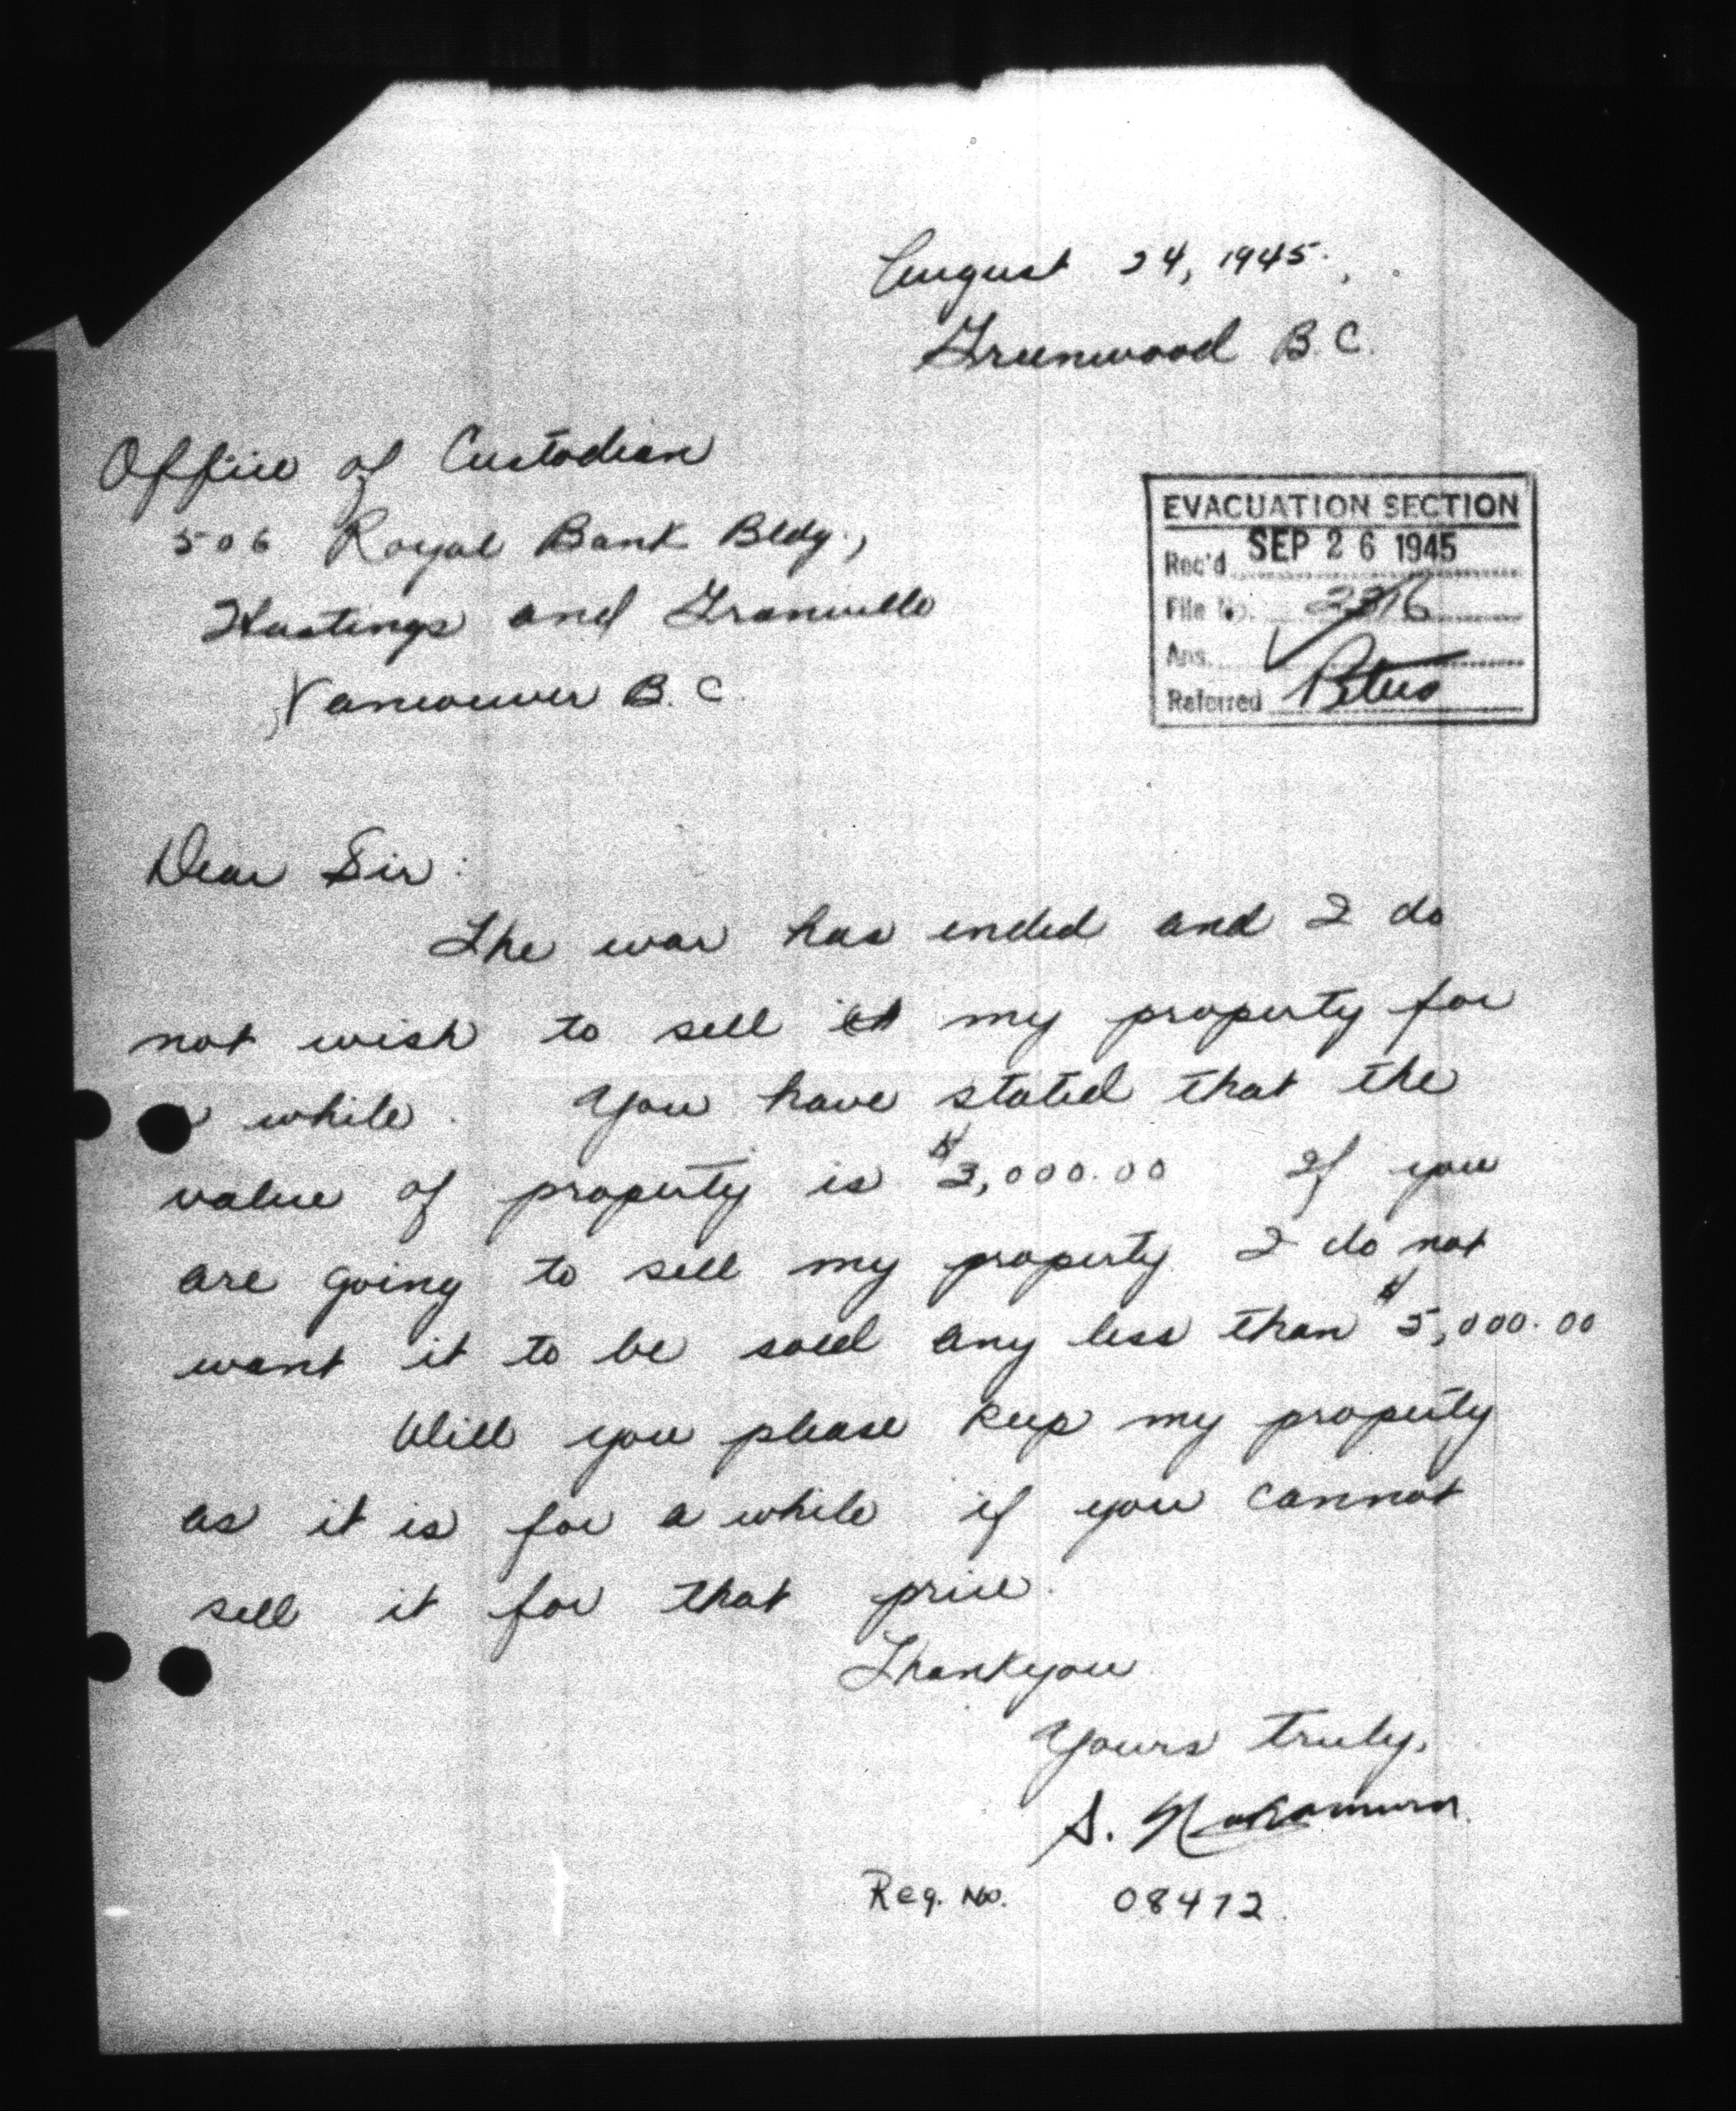 August 24, 1945.
Greenwood B.C.
Office of Custodian
506 Royal Bank Bldg.,
Hastings and Granville
Vancouver B.C.
EVACUATION SECTION
Rec'd SEP 26 1945
File No.
Ans.
Referred
Dear Sir:
The war has ended and I do
not wish to sell it my property for
a while. You have stated that the
value of property is $3,000.00 If you
are going to sell my property I do not
want it to be sold any less than $5,000.00
Will you please keep my property
as it is for a while if you cannot
sell it for that price.
Thankyou
Yours truly,
S. Nakamura
Reg. No. 08472